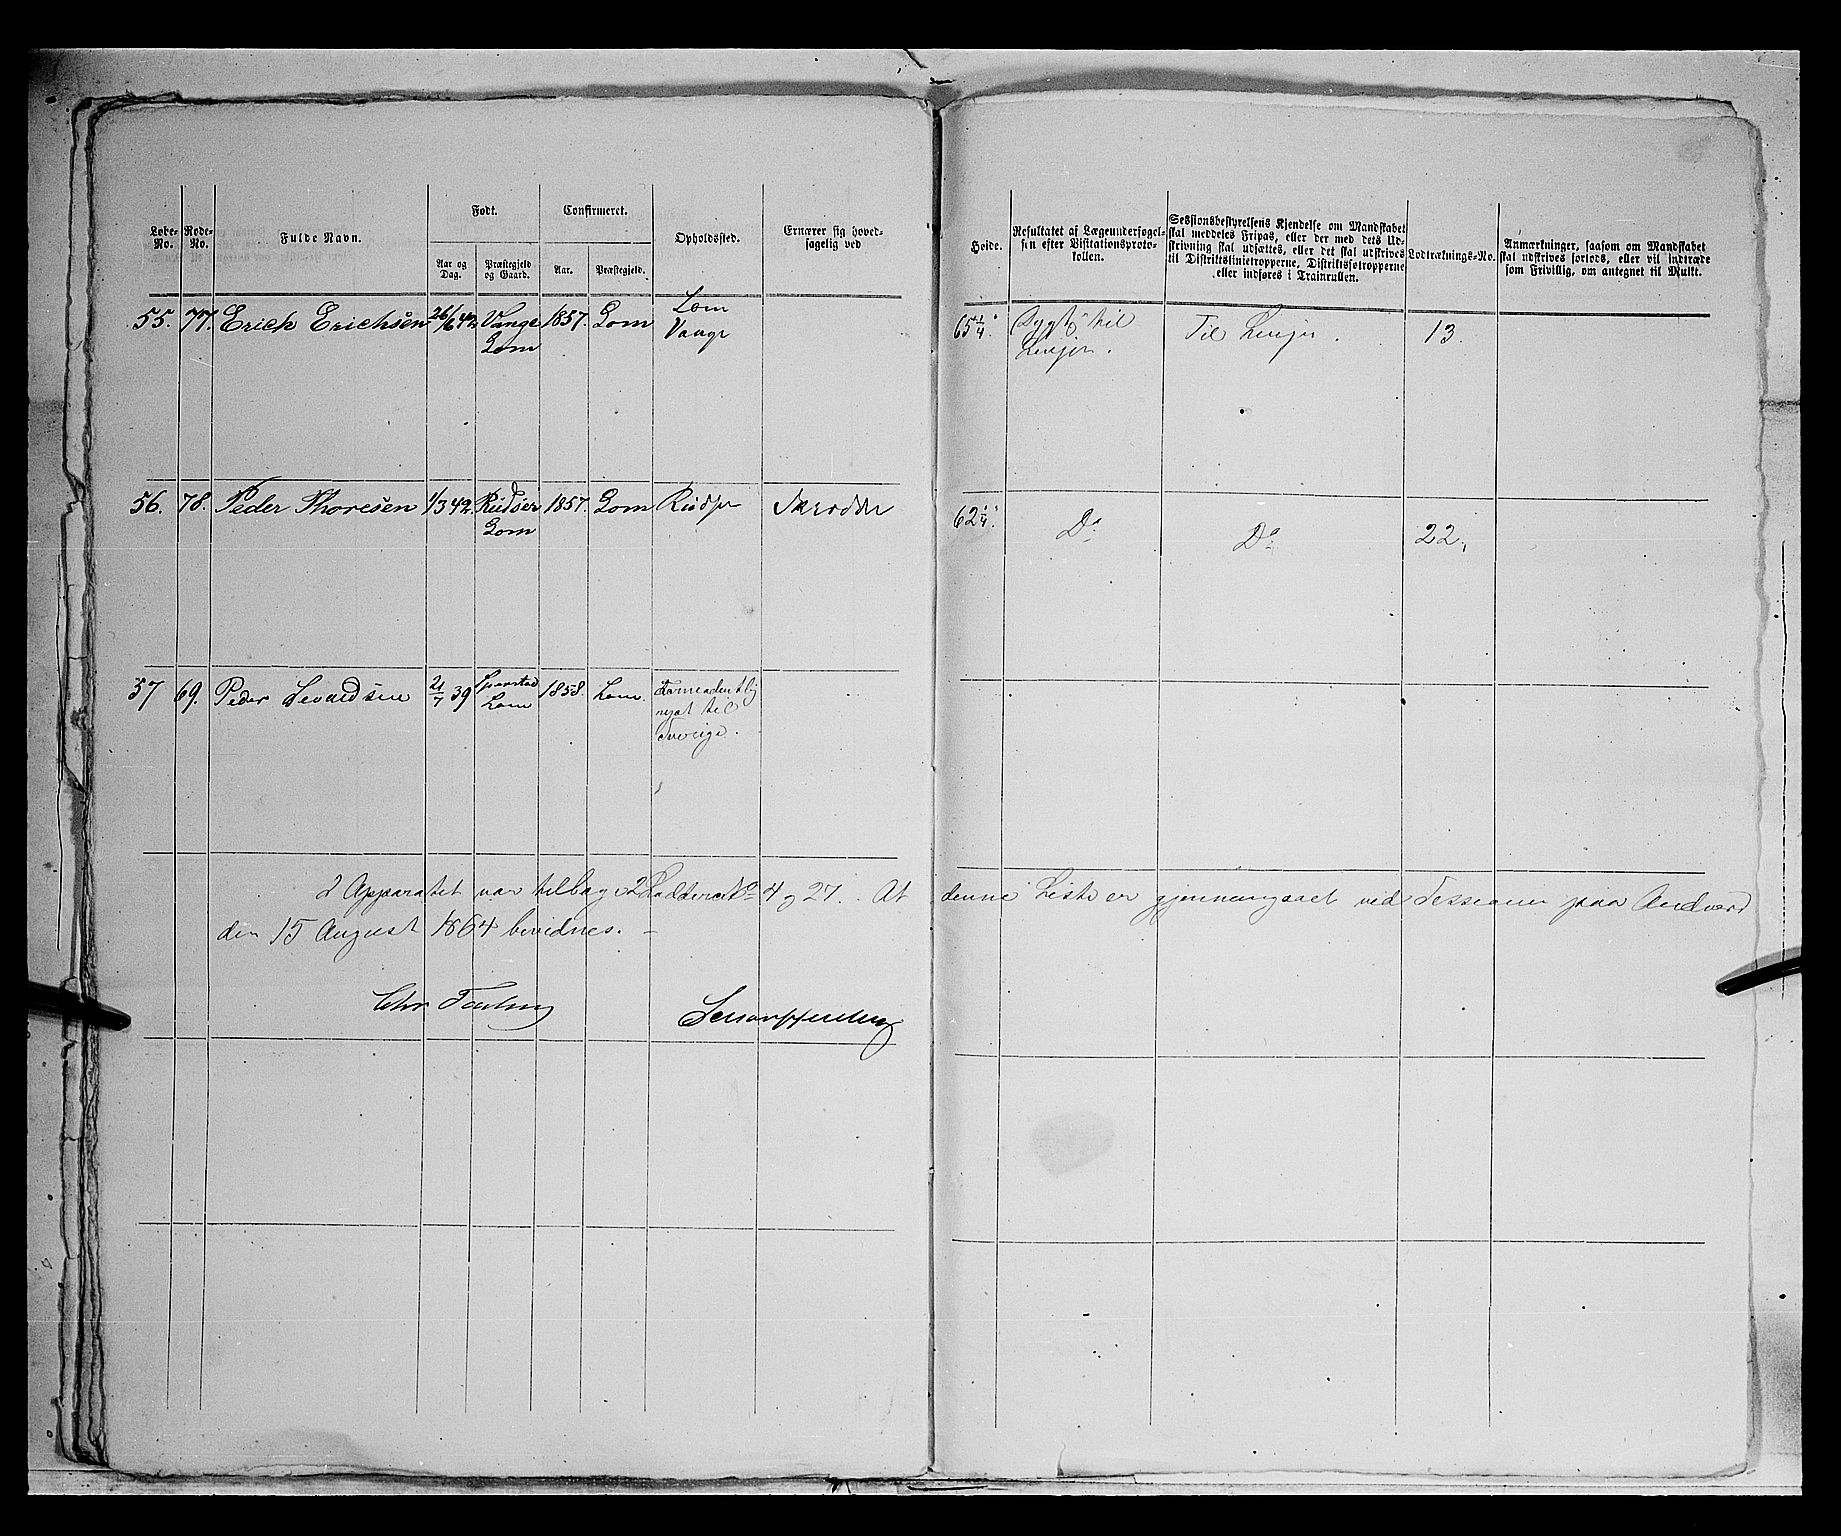 Løbe-No.
Rode-No.
Fulde Navn.
Født.
Aar og Dag.
Præstegjeld og Gaard.
Confirmeret.
Aar.
Præstegjeld.
Opholdssted.
Ernærer sig hoved-
sagelig ved
Høide.
Resultatet af Lægeundersøgel-
sen efter Visitationsproto-
kollen.
Sessionsbestyrelsens Kjendelse om Mandskabet
skal meddeles Fripas, eller der med dets Ud-
skrivning skal udsættes, eller det skal udskrives
til Distriktslinietropperne, Distriktsfotropperne
eller indføres i Trainrullen.
Lodtræknings-No.
Anmærkninger, saasom om Mandskabet
skal udskrives forlods, eller vil indtræde
som Frivillig, om antegnet til Mulkt.
55. 77. Erich Erichsen 26/6 42 Vange 1857. Lom Lom 65 1/4". Dygtig til Til Linjen. 13.
Lom Vange Linjen.
56. 78. Peder Thoresen 1/3 42. 1857. Lom 62 1/4". Do Do 22.
Lom
57 69. Peder 21/7 39 1858. Lom.
Lom til
Sverige.
I Apparatet var tilbage 2 Lodder No 4 og 27. At denne Liste er gjennemgaaet ved Sessionen paa Andvord
den 15 August 1864 bevidnes. —
Chr